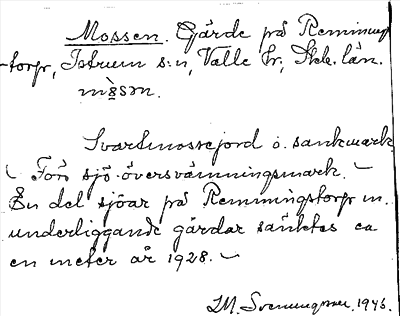 Mossen. Gärde på Remmings-
-torp, Istrum s:n, Valle hr, Skb. län.
mòsən.
Svartmossejord o. sankmark
Förr sjö-översvämningsmark.
En del sjöar på Remmingstorp m.
underliggande gårdar sänktes ca
en meter år 1928.
1946.